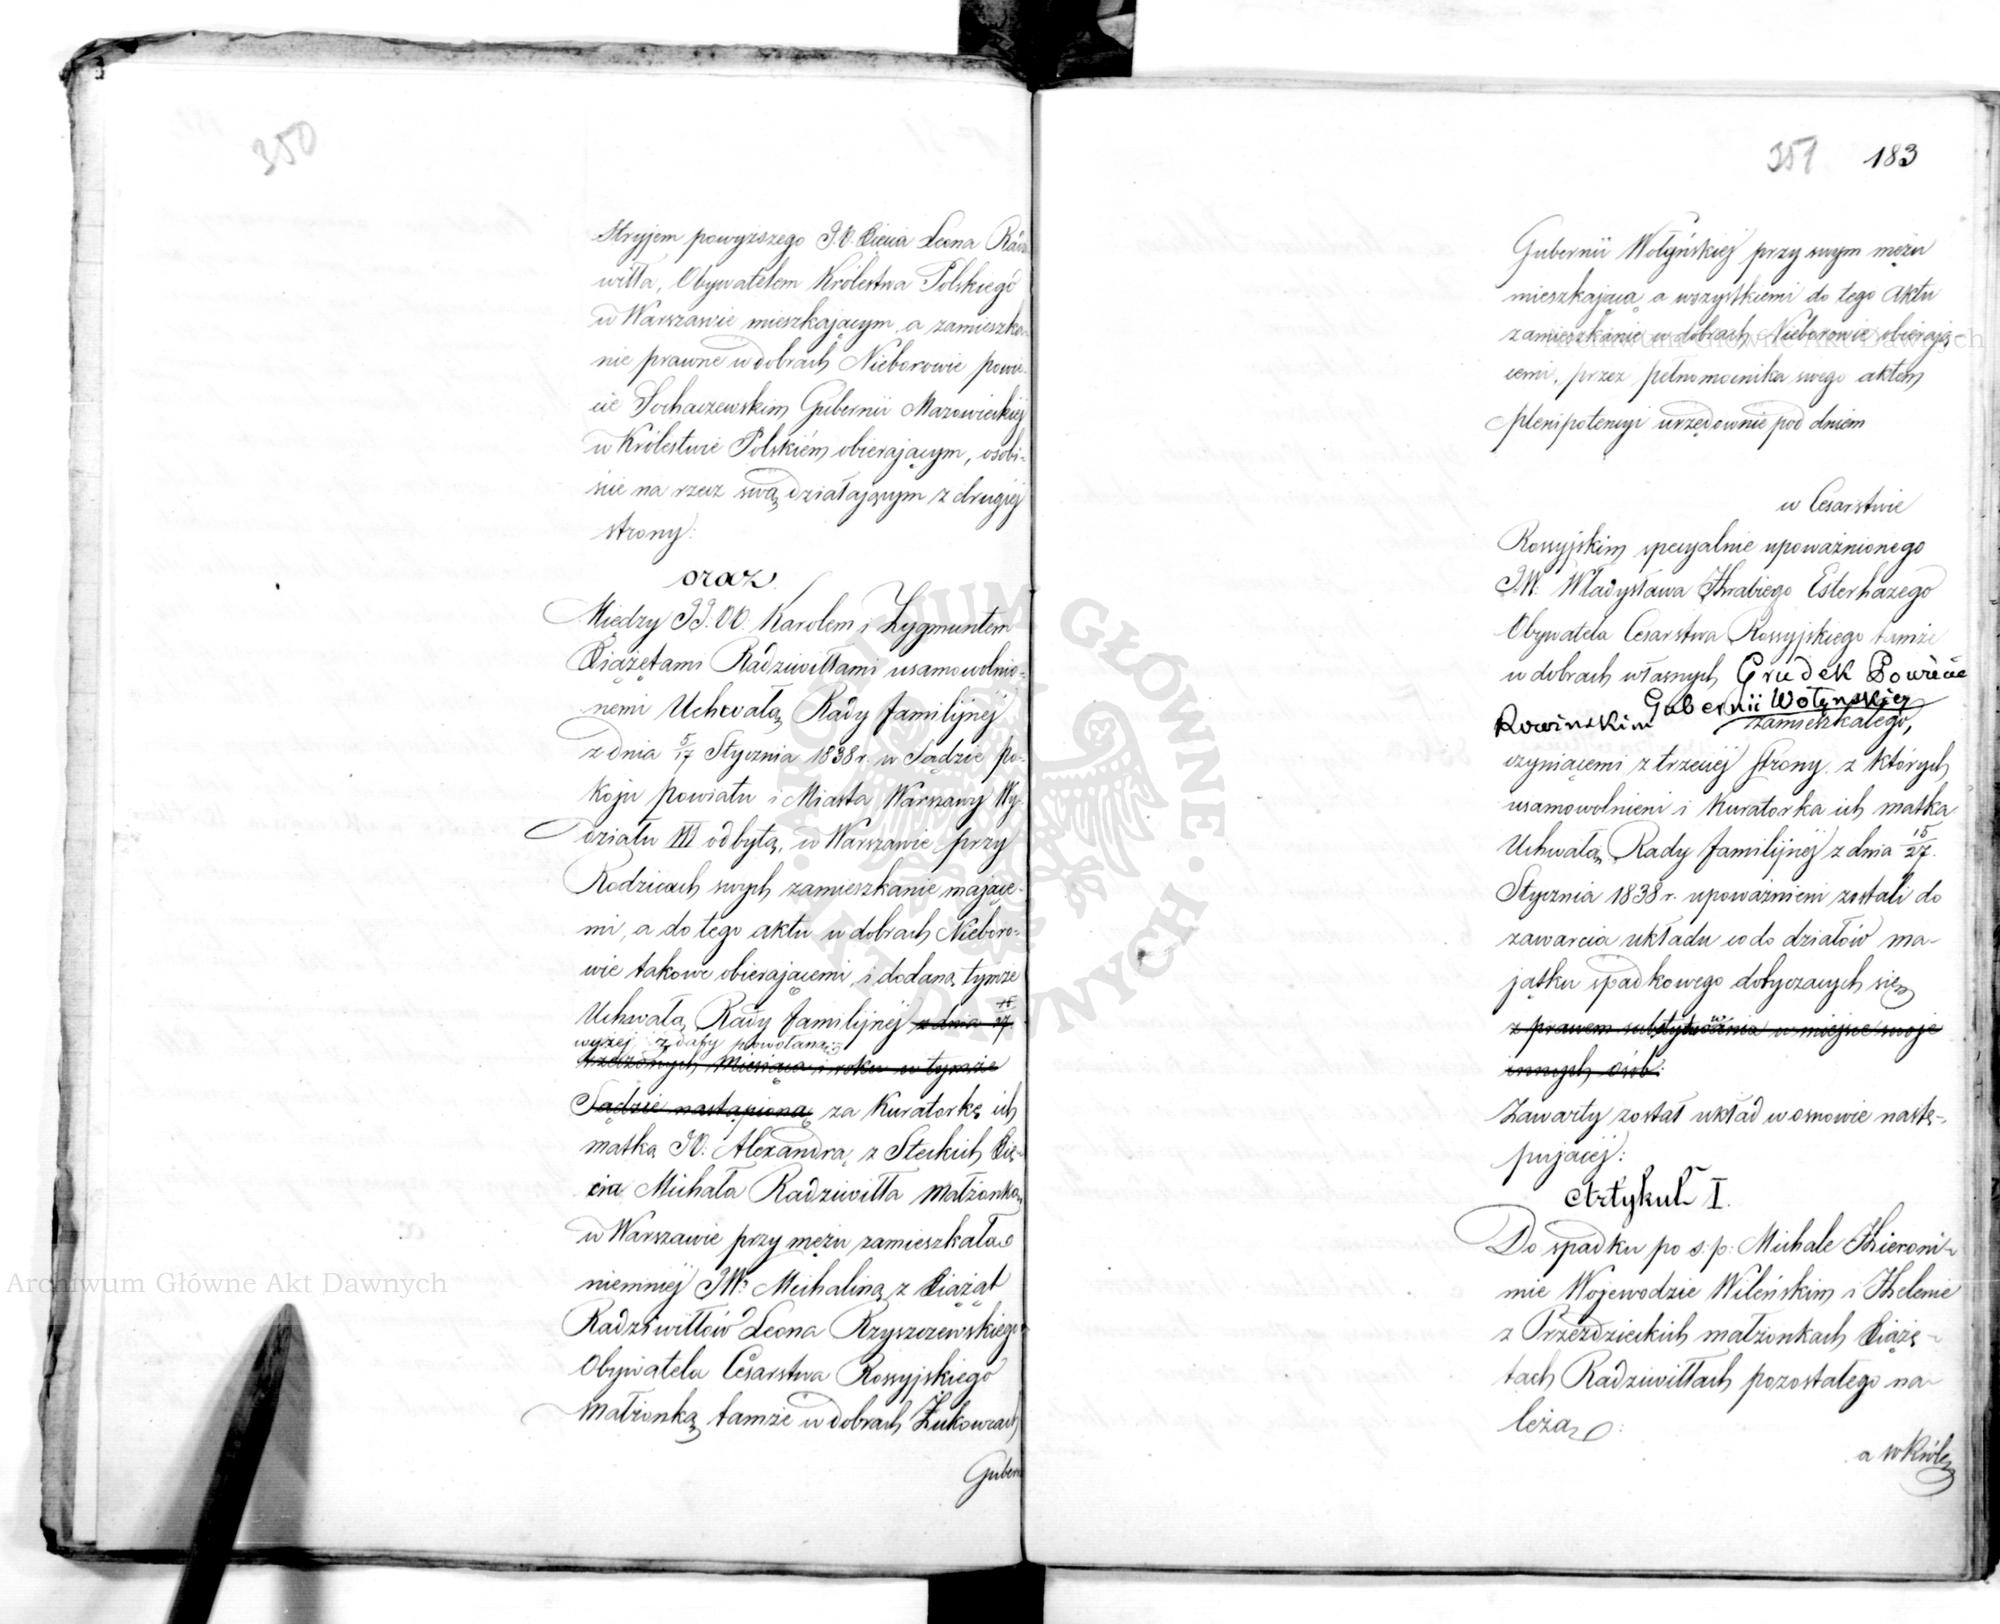 350
Stryjem powyższego J.O. Xięcia Leona Radzi
wiłła, Obywatelem Królestwa Polskiego
w Warszawie mieszkającym a zamieszka-
nie prawne w dobrach Nieborowie powie-
cie Sochaczewskim Gubernii Mazowieckiej
w Królestwie Polskiém obierającym, osobi-
ście na rzecz swą działającym z drugiéj
strony:
oraz
Między JJ.OO. Karolem i Zygmuntem
Xiążętami Radziwiłłami usamowolnio-
nemi Uchwałą Rady familijnéj
z dnia 5/17 Stycznia 1838 r. w Sądzie po-
koju powiatu i Miasta Warszawy Wy-
działu III odbytą, w Warszawie przy
Rodzicach swych zamieszkanie mające-
mi, a do tego aktu w dobrach Nieboro-
wie takowe obierającemi, i dodaną tymże
Uchwałą Rady familijnéj z dnia 15/27
wyżej z daty powołaną
rzeczonych Miesiąca i roku w tymże
Sądzie nastąpioną za Kuratorkę ich
matką JO: Alexandrą z Steckich Xię-
cia Michała Radziwiłła Małżonką
w Warszawie przy mężu zamieszkałą
niemniéj JW: Michaliną z Xiążąt
Radziwiłłów Leona Rzyszczewskiego
Obywatela Cesarstwa Rossyjskiego
Małżonką tamże w dobrach Żukowcach
Guberni
351 183
Gubernii Wołyńskiéj przy swym mężu
mieszkającą a wszystkiemi do tego Aktu
zamieszkanie w dobrach Nieborowie obierają
cemi, przez pełnomocnika swego aktem
plenipotencyi urzędownie pod dniem
w Cesarstwie
Rossyjskim specyalnie upoważnionego
J.W. Władysława Hrabiego Esterhazego
Obywatela Cesarstwa Rossyjskiego tamże
w dobrach własnych Grudek Powiecie
Rowińskim Gubernii Wołyńskiej
zamieszkałego,
czyniącemi z trzeciéj strony, z których
usamowolnieni i Kuratorka ich matka
Uchwałą Rady familijnéj z dnia 15/27.
Stycznia 1838 r. upoważnieni zostali do
zawarcia układu co do działów ma-
jątku spadkowego dotyczących się
z prawem substytuowania w miejsce swoje
innych osób:
Zawarty został układ w osnowie nastę-
pującéj:
Artykuł I.
Do spadku po s.p: Michale Hieroni-
mie Wojewodzie Wileńskim i Helenie
z Przezdzieckich małżonkach Xiążę-
tach Radziwiłłach pozostałego na-
leżą:
a w Króle
Archiwum Główne Akt Dawnych
Archiwum Główne Akt Dawnych
ARCHIWUM GŁÓWNE · AKT DAWNYCH ·